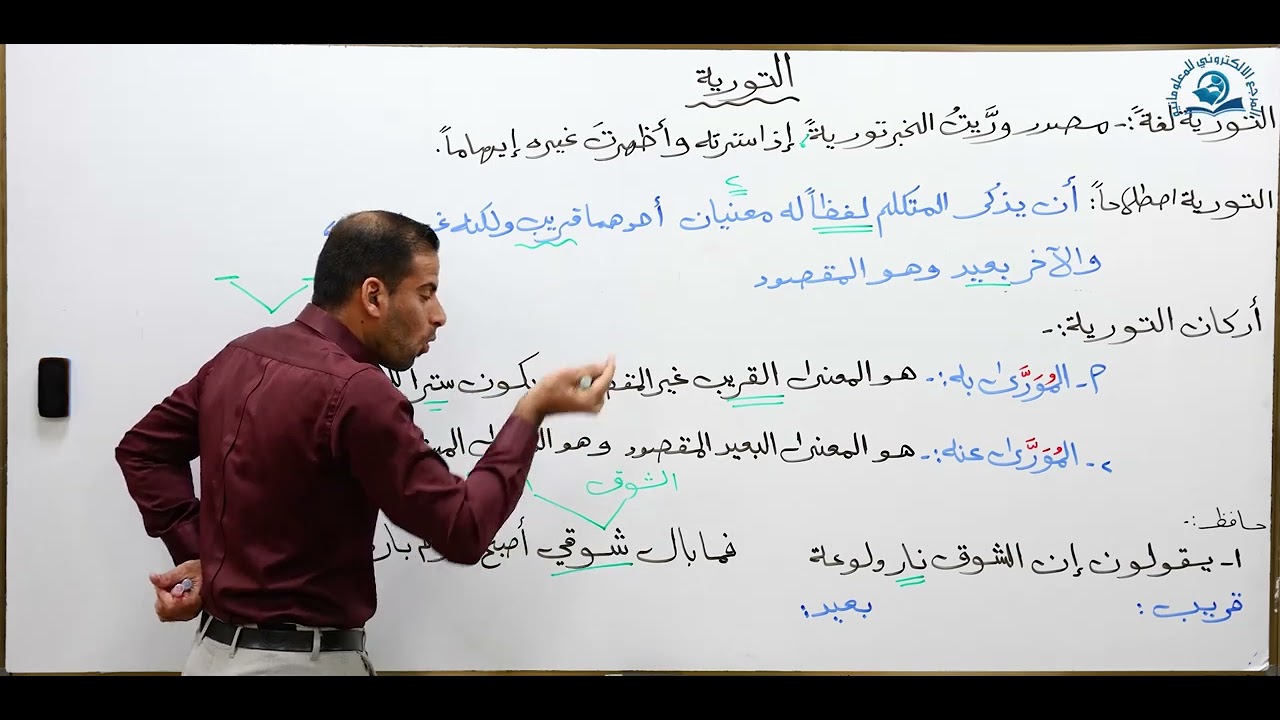 التورية
المرجع الالكتروني للمعلوماتية
التورية لغةً:- مصدر ورَّيتُ الخبر توريةً، إذ استرته وأظهرتَ غيره إيهاماً.
٢
التورية اصطلاحاً: أن يذكر المتكلم لفظاً له معنيان أحدهما قريب ولكنه
والآخر بعيد وهو المقصود
أركان التورية:-
١- المُوَرَّى به:- هو المعنى القريب غير يكون ستراً
٢- المُوَرَّى عنه:- هو المعنى البعيد المقصود وهو
الشوق
حافظ:-
١- يقولون إن الشوق نار ولوعة فما بال شوقي أصبح
قريب : بعيد: